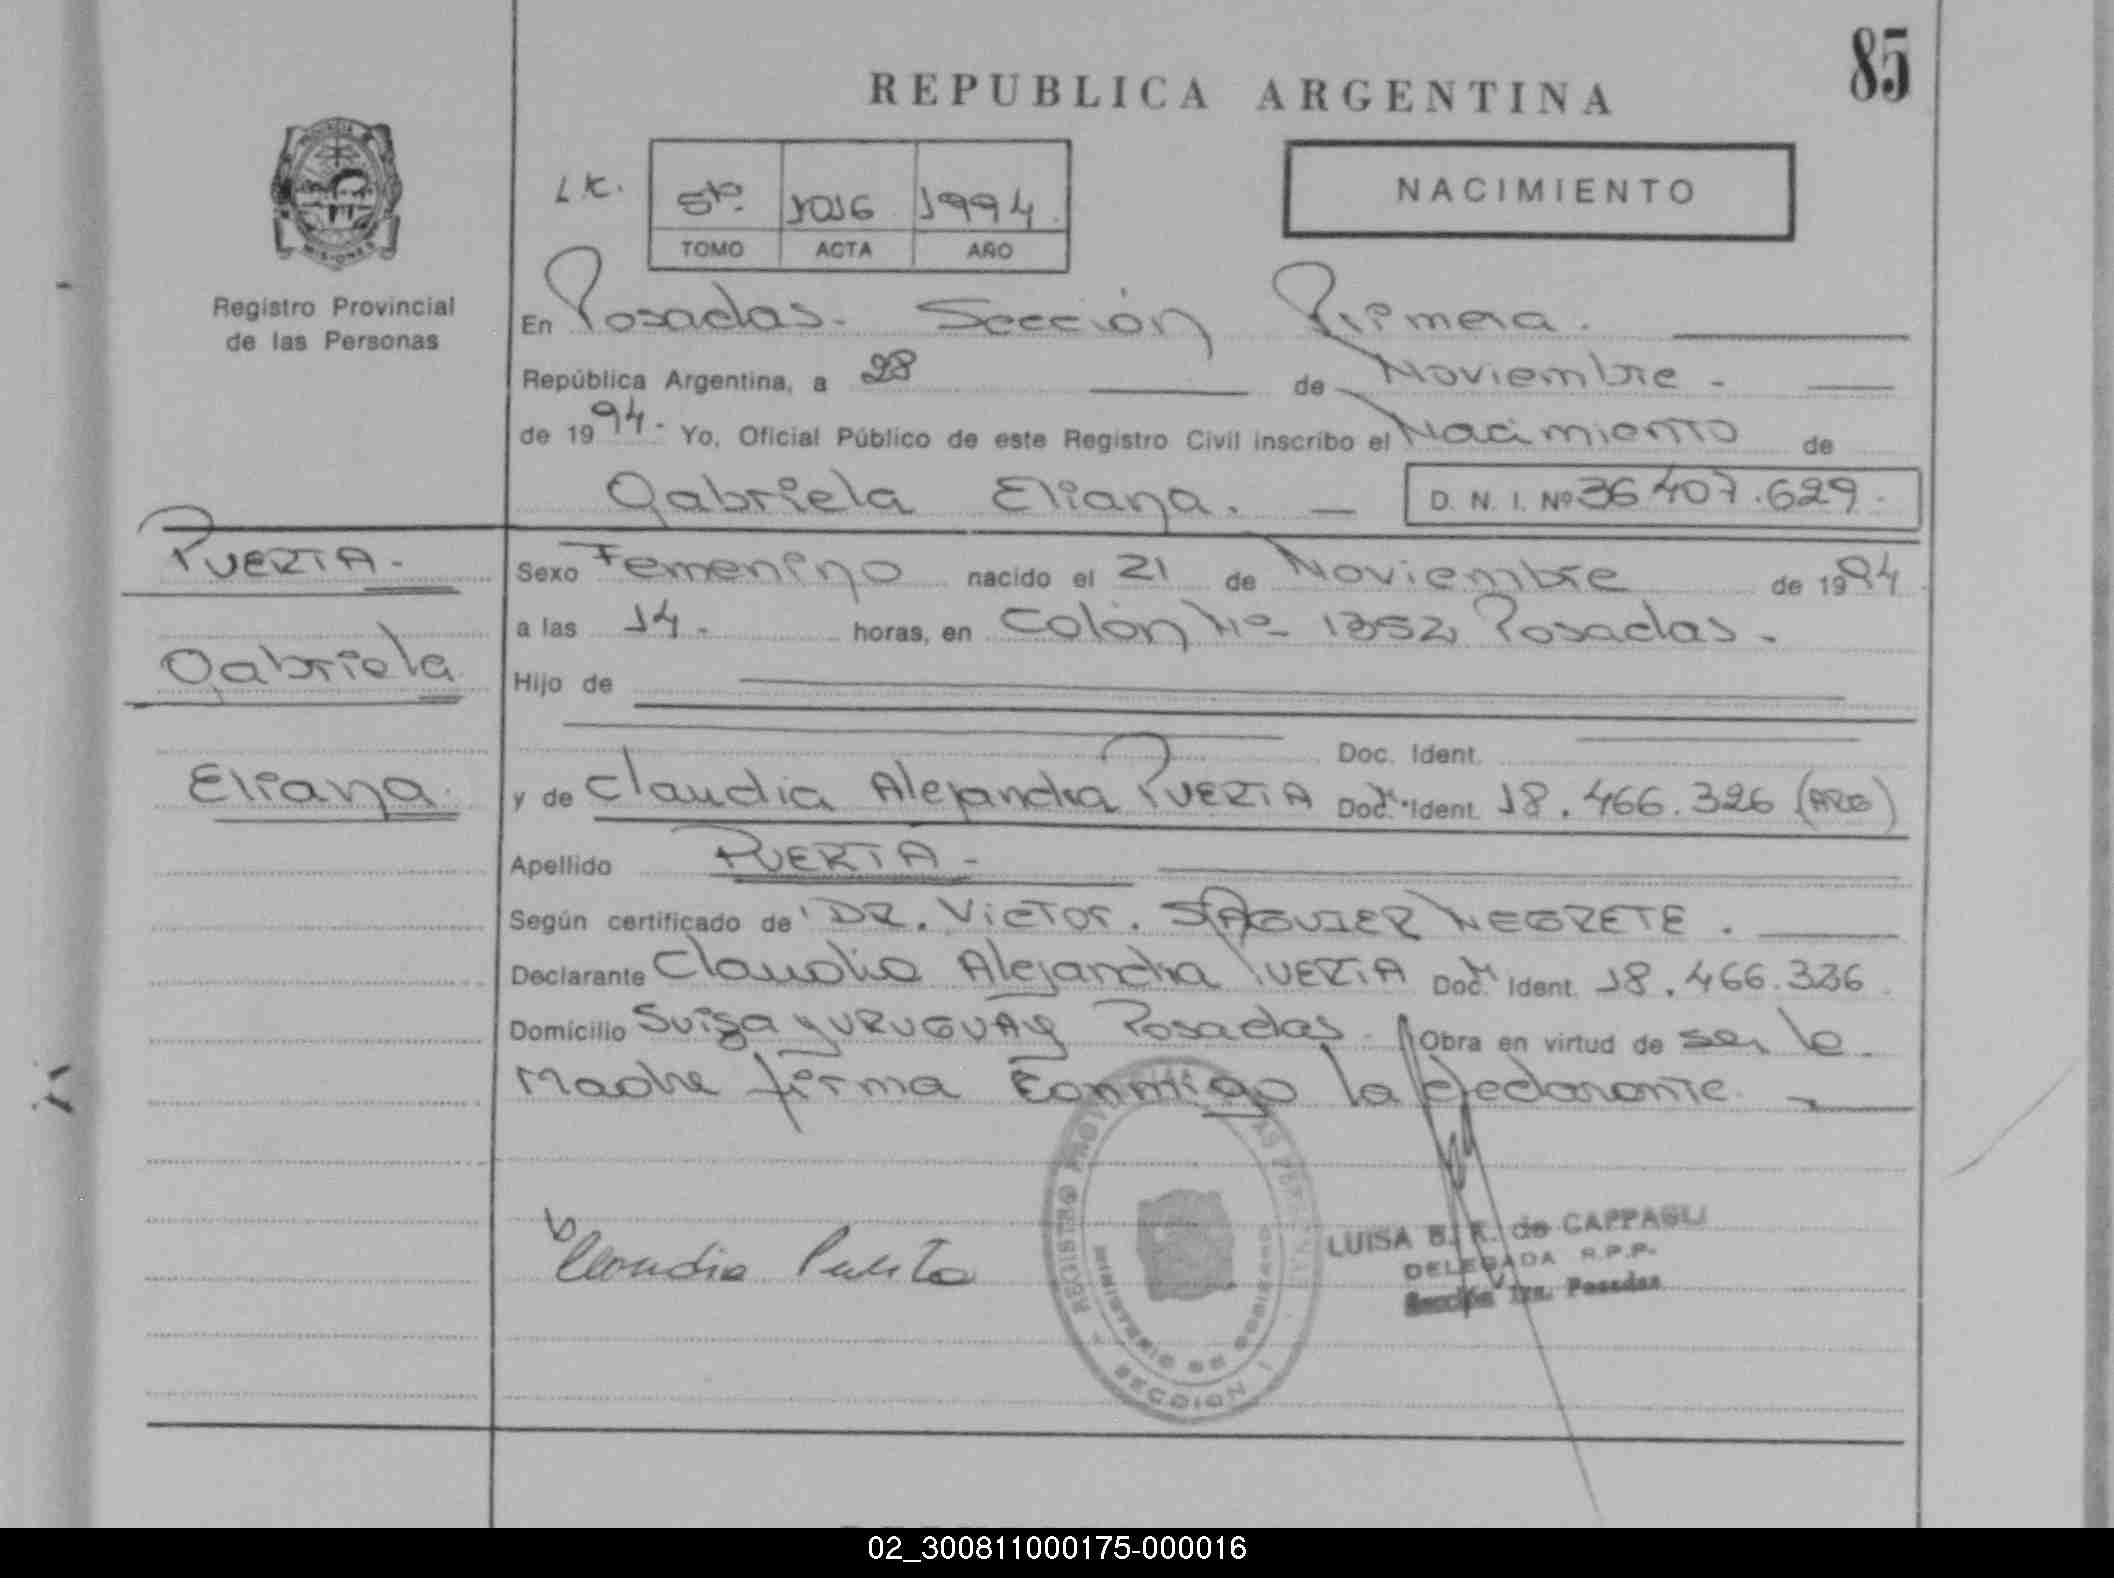 85
REPUBLICA ARGENTINA
L.K. 5to. 1016 1994
TOMO ACTA AÑO
NACIMIENTO
Registro Provincial
de las Personas
En Posadas. Sección Primera.
República Argentina, a 28 de Noviembre.
de 1994. Yo, Oficial Público de este Registro Civil inscribo el Nacimiento de
Gabriela Eliana. D. N. I. Nº 36.407.629.
PUERTA.
Gabriela
Eliana.
Sexo Femenino nacido el 21 de Noviembre de 1994
a las 14. horas, en Colón Nº 1352 Posadas.
Hijo de
Doc. Ident.
y de Claudia Alejandra PUERTA Doc. Ident. 18.466.326 (ARG)
Apellido PUERTA.
Según certificado de DR. VICTOR. SAGUIER NEGRETE.
Declarante Claudia Alejandra PUERTA Doc. Ident. 18.466.326
Domicilio Suiza y URUGUAY Posadas. Obra en virtud de ser la
Madre firma conmigo la declarante.
Claudia Puerta
REGISTRO PROVINCIAL DE LAS PERSONAS
MINISTERIO DE GOBIERNO
SECCION 1
LUISA B. K. de CAPPAGLI
DELEGADA R.P.P.
Sección 1ra. Posadas
02_300811000175-000016